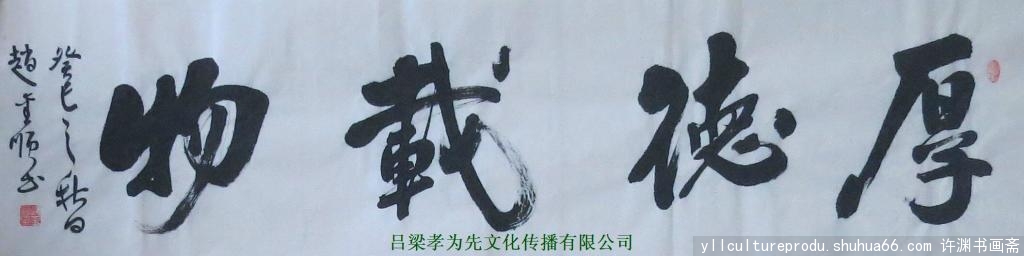 厚德載物
癸巳之秋日
趙金順书
吕梁孝为先文化传播有限公司
yllcultureprodu.shuhua66.com 许渊书画斋